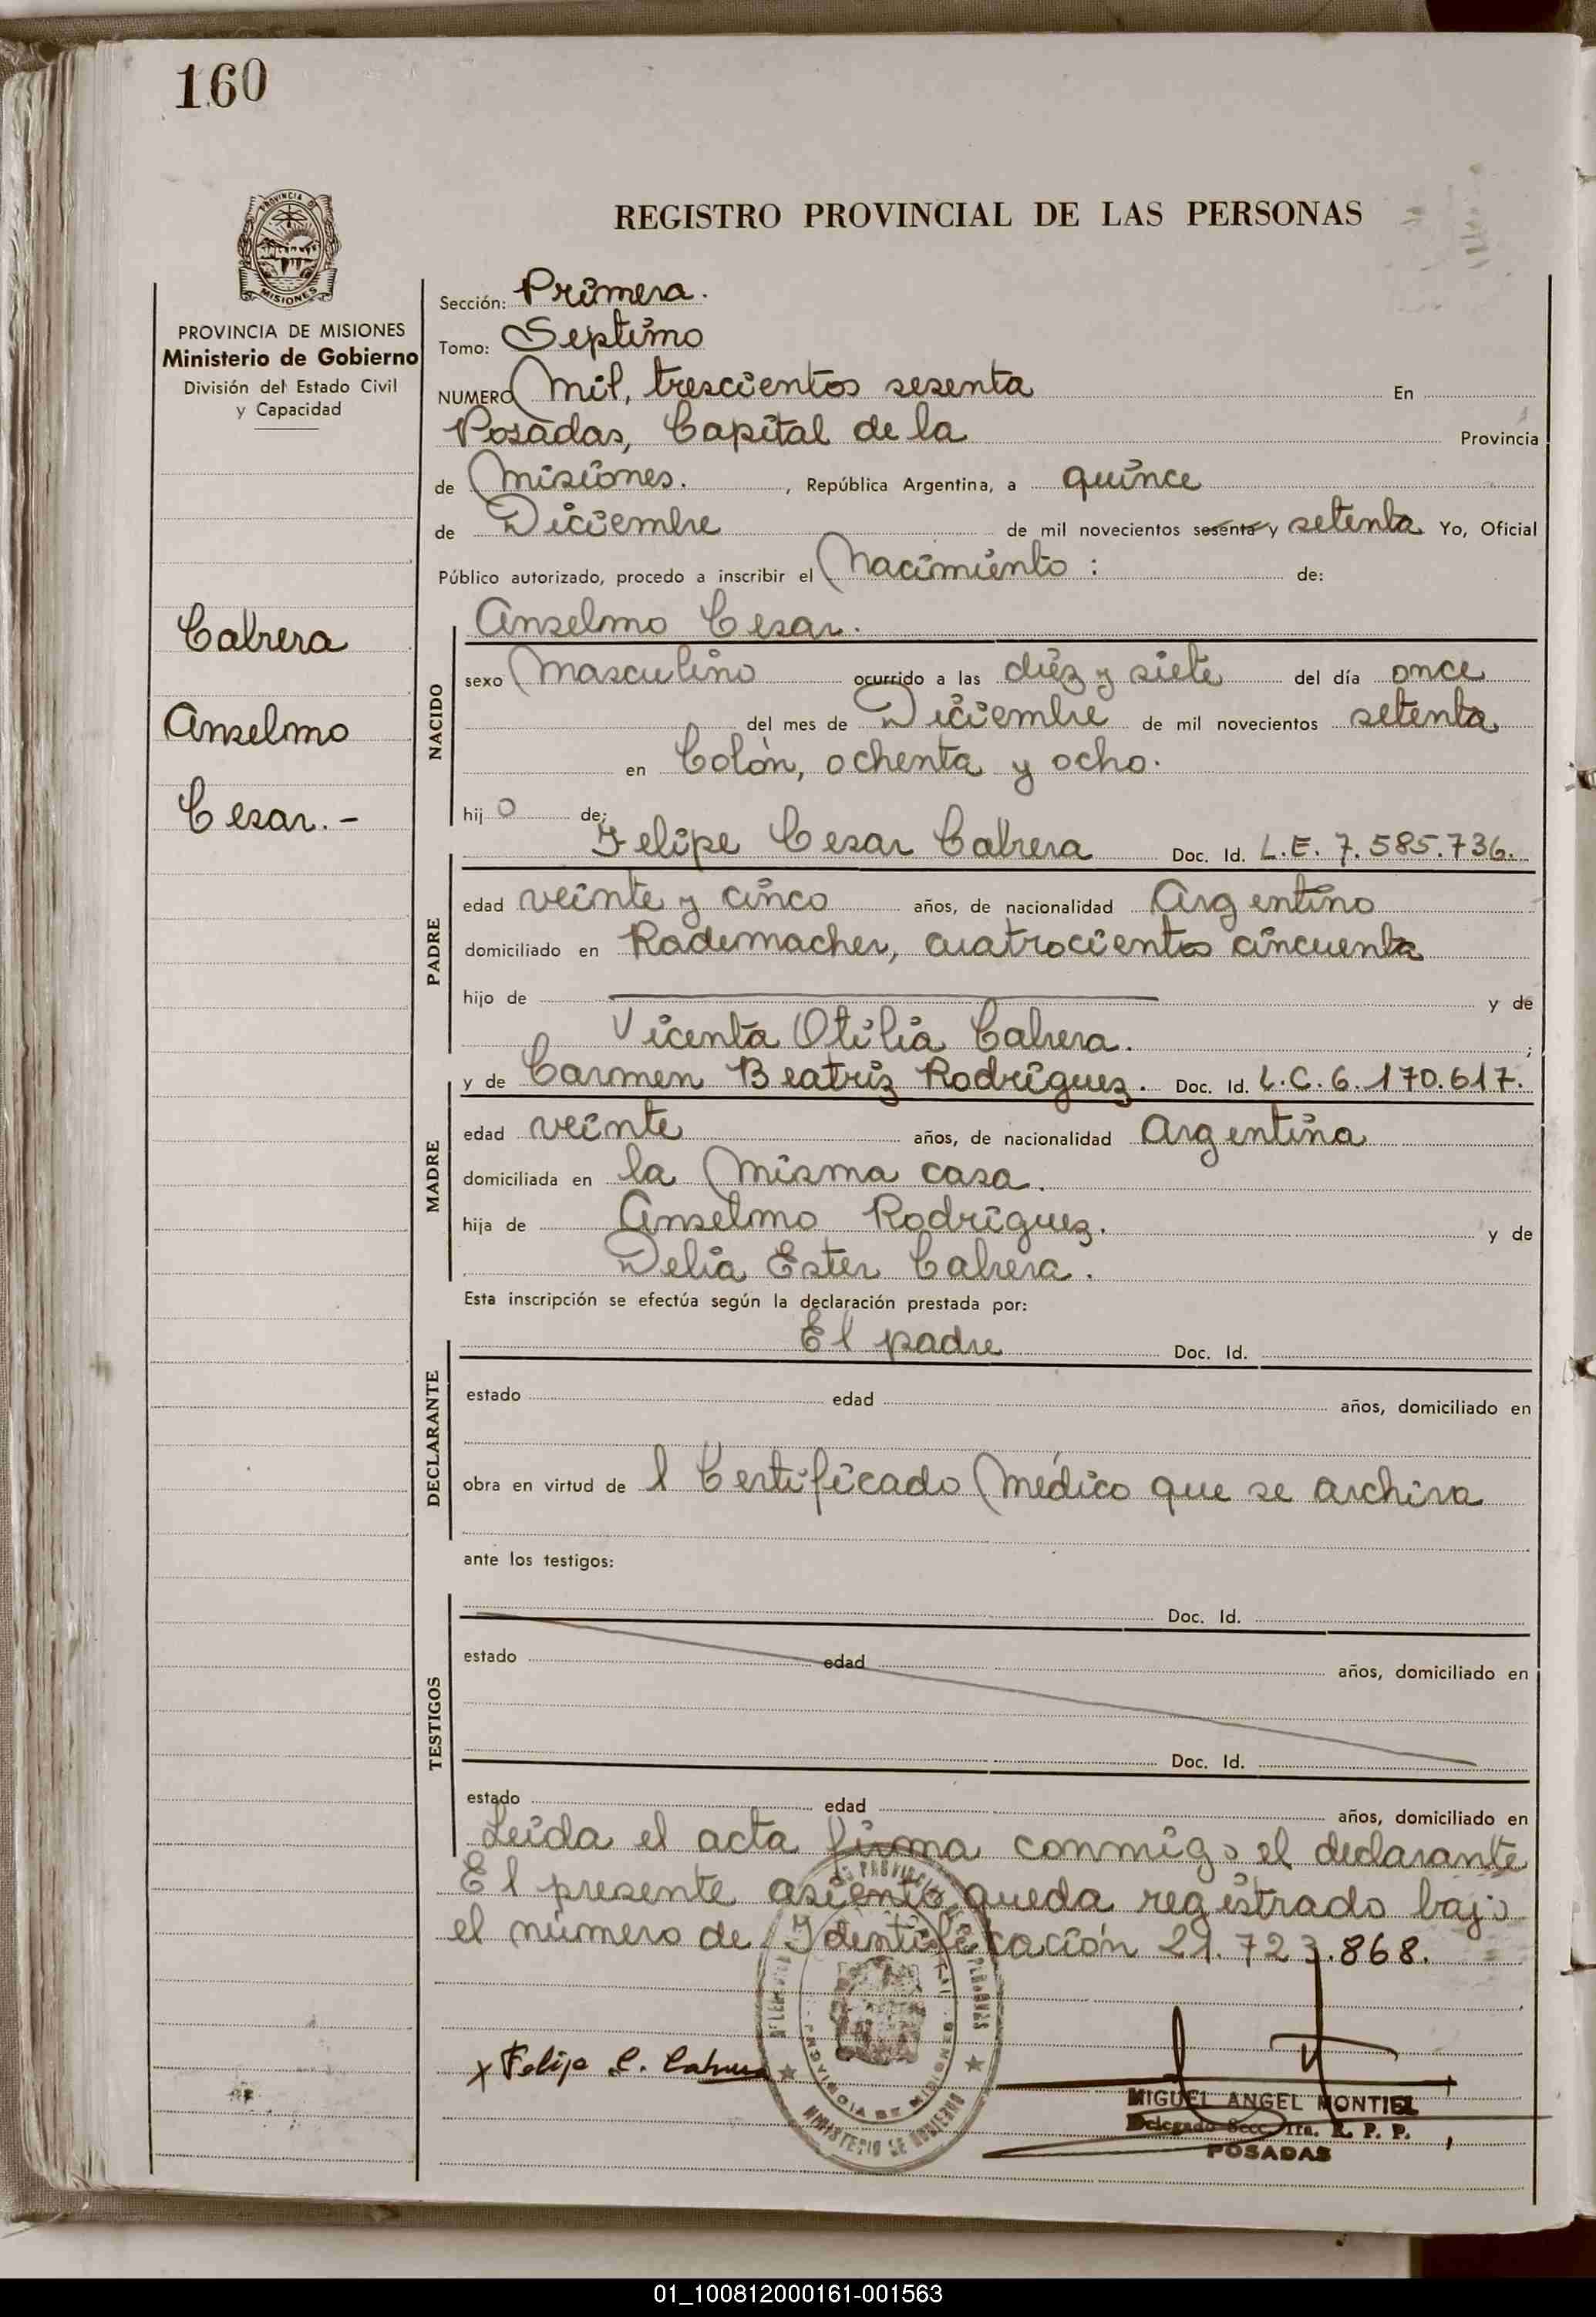 160
PROVINCIA DE
MISIONES
PROVINCIA DE MISIONES
Ministerio de Gobierno
División del Estado Civil
y Capacidad
Cabrera
Anselmo
Cesar.-
REGISTRO PROVINCIAL DE LAS PERSONAS
Sección: Primera.
Tomo: Septimo
NUMERO Mil, trescientos sesenta En
Posadas, Capital de la Provincia
de Misiones. , República Argentina, a quince
de Diciembre de mil novecientos sesenta y setenta Yo, Oficial
Público autorizado, procedo a inscribir el Nacimiento : de:
Anselmo Cesar.
NACIDO
sexo Masculino ocurrido a las diez y siete del día once
del mes de Diciembre de mil novecientos setenta
en Colón, ochenta y ocho.
hij o de;
Felipe Cesar Cabrera Doc. Id. L.E. 7.585.736.
PADRE
edad veinte y cinco años, de nacionalidad Argentino
domiciliado en Rademacher, cuatrocientos cincuenta
hijo de y de
Vicenta Otilia Cabrera. ;
y de Carmen Beatriz Rodríguez. Doc. Id. L.C. 6.170.617.
MADRE
edad veinte años, de nacionalidad Argentina
domiciliada en la Misma casa.
hija de Anselmo Rodríguez. y de
Delia Ester Cabrera.
Esta inscripción se efectúa según la declaración prestada por:
El padre Doc. Id.
DECLARANTE
estado edad años, domiciliado en
obra en virtud de l Certificado Médico que se archiva
ante los testigos:
TESTIGOS
Doc. Id.
estado edad años, domiciliado en
Doc. Id.
estado edad años, domiciliado en
Leída el acta firma conmigo el declarante
El presente asiento queda registrado bajo
el número de Identificación 21.723.868.
x Felipe C. Cabrera
PROVINCIA DE MISIONES
MINISTERIO DE GOBIERNO
MIGUEL ANGEL MONTIEL
Delegado Secc. 1ra. R. P. P.
POSADAS
01_100812000161-001563